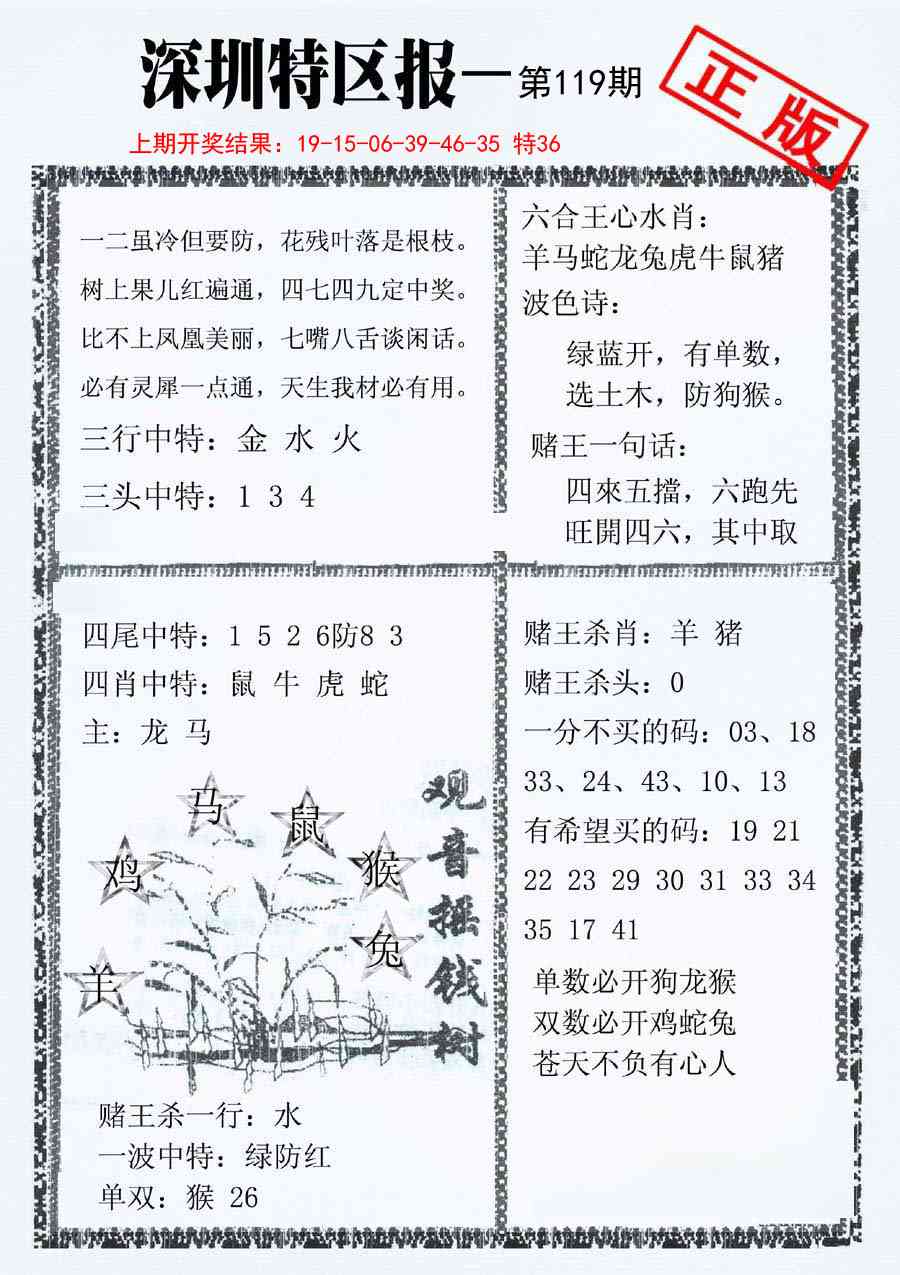 深圳特区报—第119期
正版
上期开奖结果：19-15-06-39-46-35 特36
一二虽冷但要防，花残叶落是根枝。
树上果儿红遍通，四七四九定中奖。
比不上凤凰美丽，七嘴八舌谈闲话。
必有灵犀一点通，天生我材必有用。
三行中特：金 水 火
三头中特：1 3 4
六合王心水肖：
羊马蛇龙兔虎牛鼠猪
波色诗：
绿蓝开，有单数，
选土木，防狗猴。
赌王一句话：
四來五擋，六跑先
旺開四六，其中取
四尾中特：1 5 2 6防8 3
四肖中特：鼠 牛 虎 蛇
主：龙 马
马
鼠
鸡
猴
兔
羊
观音摇钱树
赌王杀一行：水
一波中特：绿防红
单双：猴 26
赌王杀肖：羊 猪
赌王杀头：0
一分不买的码：03、18
33、24、43、10、13
有希望买的码：19 21
22 23 29 30 31 33 34
35 17 41
单数必开狗龙猴
双数必开鸡蛇兔
苍天不负有心人